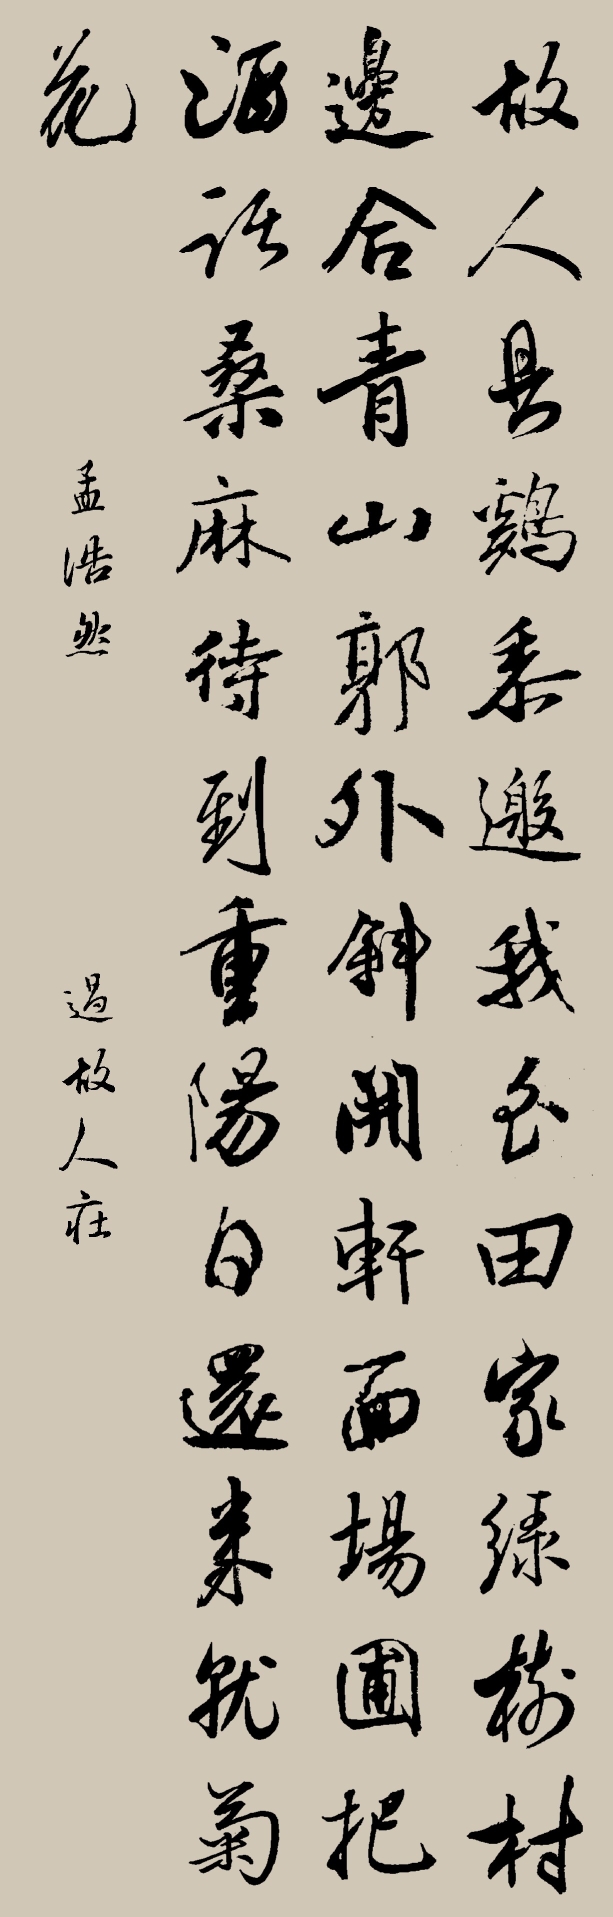 故人具鷄黍邀我至田家綠樹村
邊合青山郭外斜開軒面場圃把
酒話桑麻待到重陽日還來就菊
花
孟浩然 過故人莊